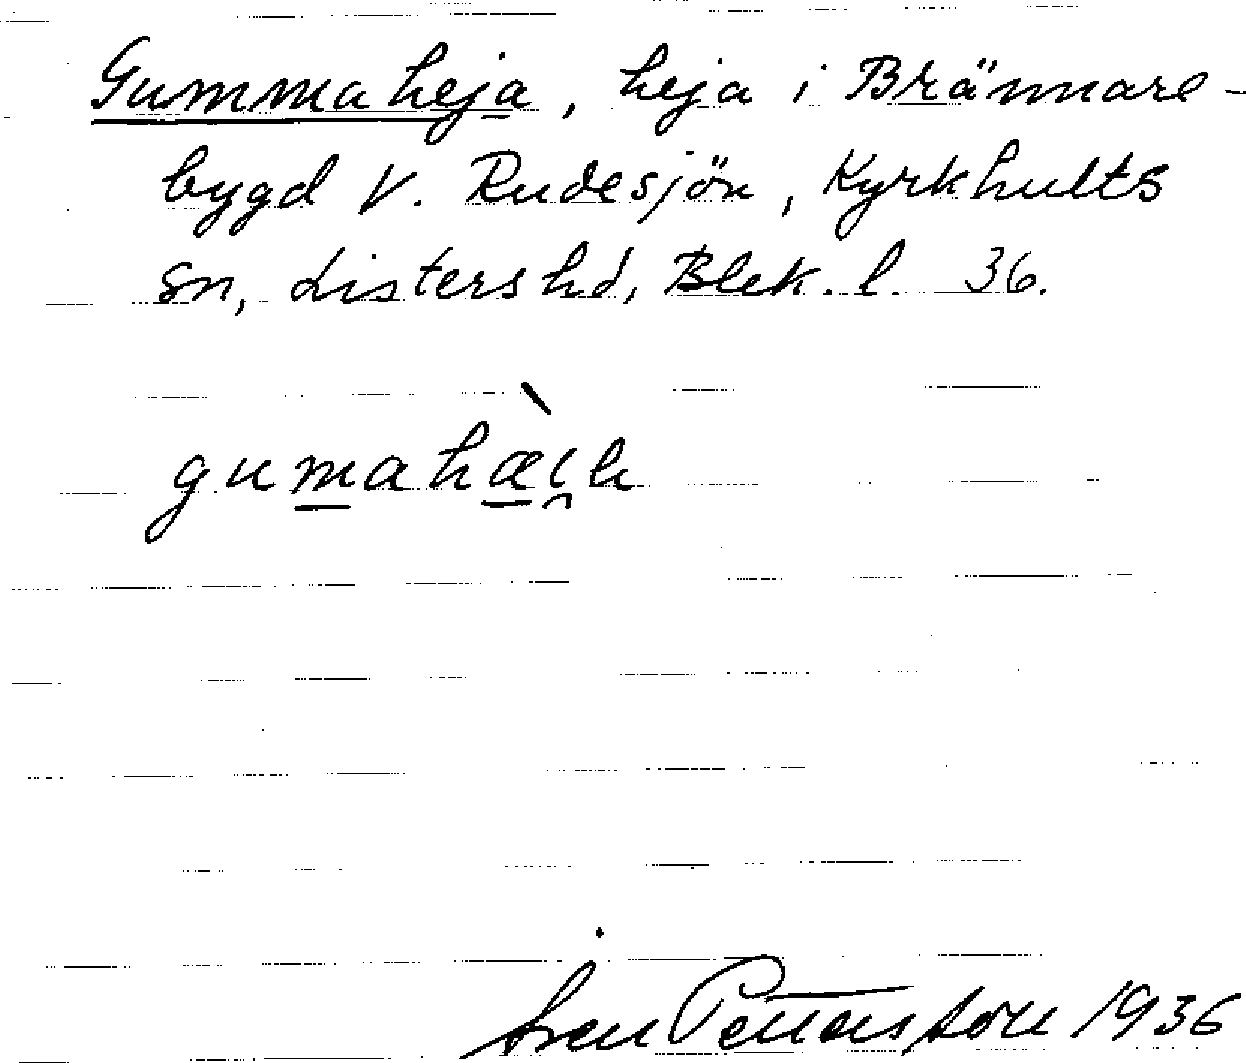 Gummaheja, heja i Brännare-
bygd V. Rudesjön, Kyrkhults
sn, Listers hd, Blek. l. 36.
gumahàih
Pettersson 1936